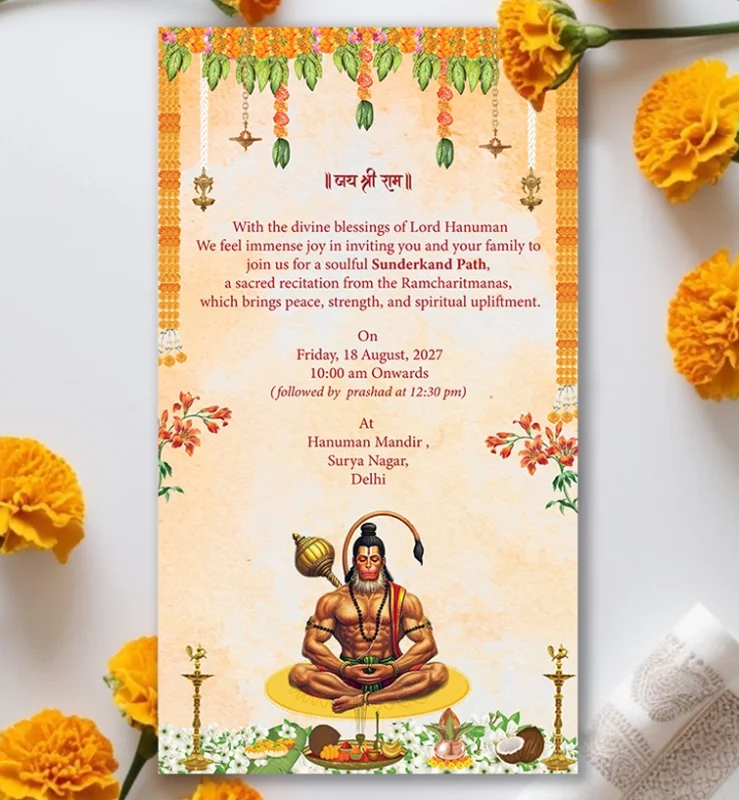 ॥ जय श्री राम ॥
With the divine blessings of Lord Hanuman
We feel immense joy in inviting you and your family to
join us for a soulful Sunderkand Path,
a sacred recitation from the Ramcharitmanas,
which brings peace, strength, and spiritual upliftment.
On
Friday, 18 August, 2027
10:00 am Onwards
(followed by prashad at 12:30 pm)
At
Hanuman Mandir ,
Surya Nagar,
Delhi